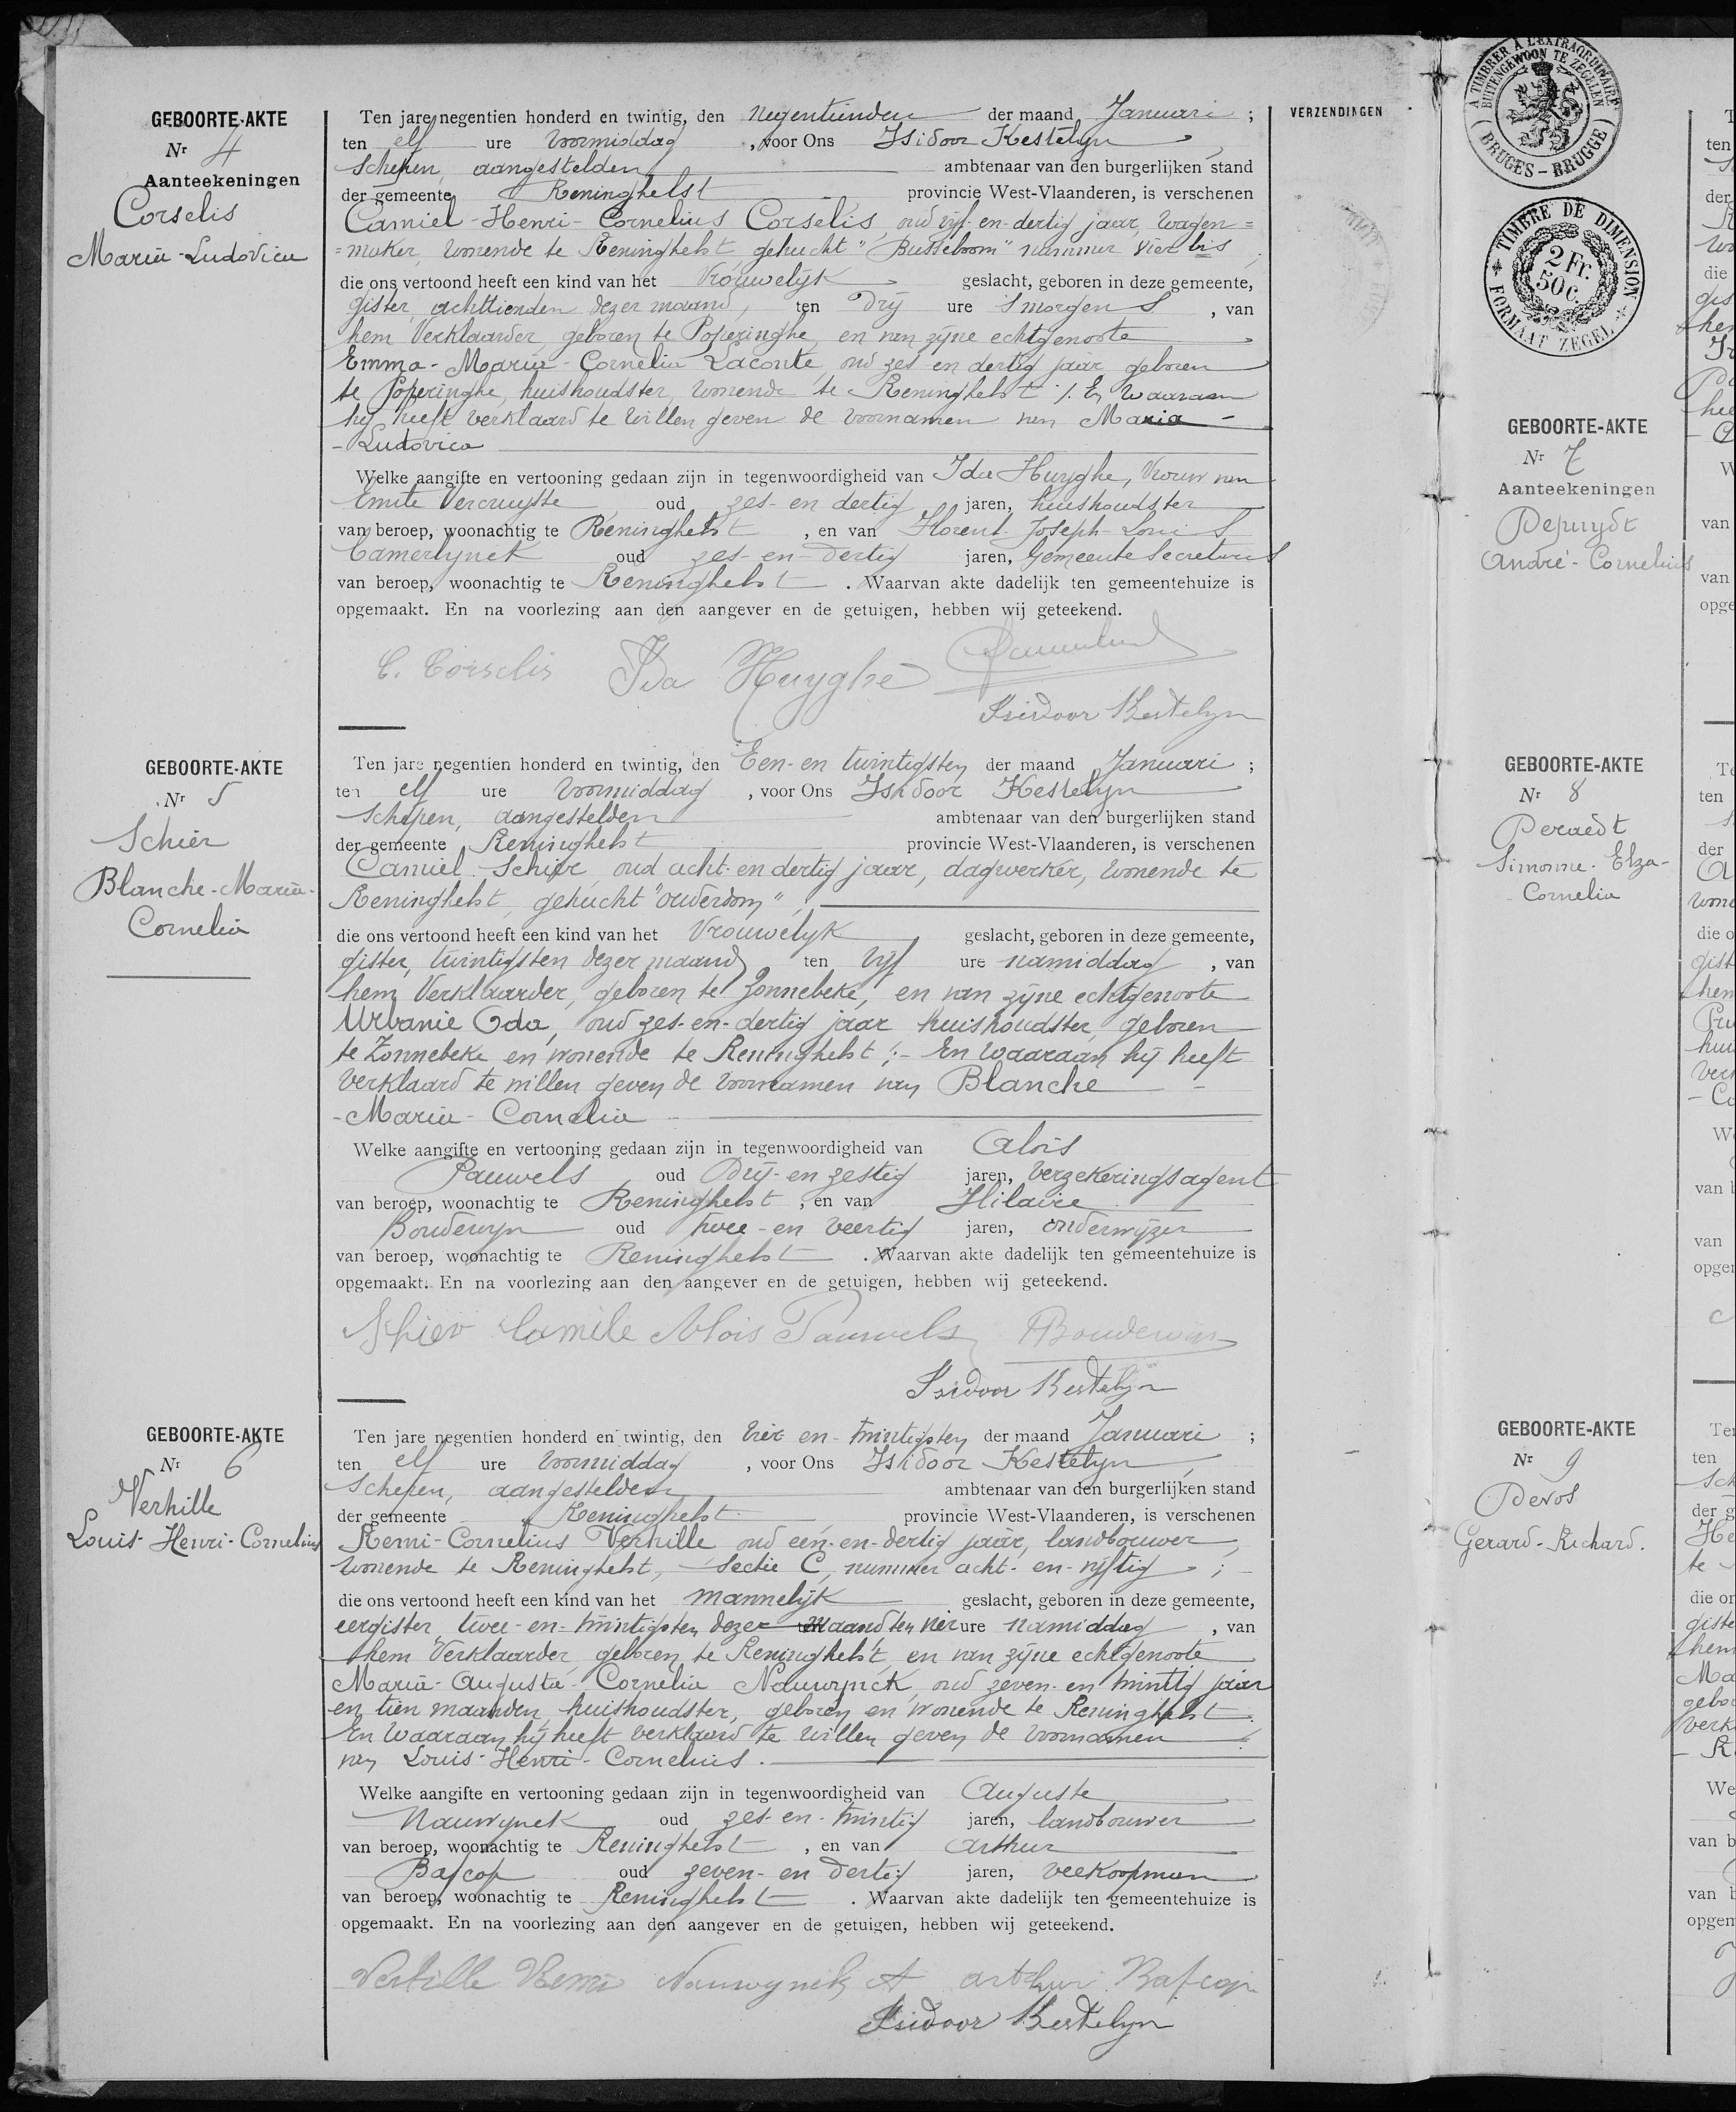 GEBOORTE-AKTE
Nr 4
Aanteekeningen
Corselis
Maria-Ludovica
Ten jare negentien honderd en twintig, den negentienden der maand Januari ;
ten elf ure voormiddag , voor Ons Isidoor Kestelyn ,
Schepen, aangestelden ambtenaar van den burgerlijken stand
der gemeente Reninghelst provincie West-Vlaanderen, is verschenen
Camiel-Henri-Cornelius Corselis, oud vijf-en-dertig jaar, wagen=
=maker, wonende te Reninghelst gehucht "Busseboom" nummer vier bis
die ons vertoond heeft een kind van het Vrouwelyk geslacht, geboren in deze gemeente,
gister, achttienden dezer maand, ten Drij ure 'smorgens , van
hem Verklaarder, geboren te Poperinghe, en van zijne echtgenoote
Emma-Maria-Cornelia Laconte, oud zes en dertig jaar, geboren
te Poperinghe, huishoudster, wonende te Reninghelst ;. En waaraan
hij heeft verklaard te willen geven de voornamen van Maria-
-Ludovica
Welke aangifte en vertooning gedaan zijn in tegenwoordigheid van Ida Huyghe, Vrouw van
Emile Vercruysse oud zes-en dertig jaren, huishoudster
van beroep, woonachtig te Reninghelst , en van Florent-Joseph-Louis
Camerlynck oud zes-en-dertig jaren, Gemeente Secretaris
van beroep, woonachtig te Reninghelst . Waarvan akte dadelijk ten gemeentehuize is
opgemaakt. En na voorlezing aan den aangever en de getuigen, hebben wij geteekend.
C. Corselis Ida Huyghe
Isidoor Kestelyn
GEBOORTE-AKTE
Nr 5
Schier
Blanche-Maria-
Cornelia
Ten jare negentien honderd en twintig, den Een-en twintigsten der maand Januari ;
ten elf ure voormiddag , voor Ons Isidoor Kestelyn
Schepen, aangestelden ambtenaar van den burgerlijken stand
der gemeente Reninghelst provincie West-Vlaanderen, is verschenen
Camiel Schier, oud acht-en dertig jaar, dagwerker, wonende te
Reninghelst, gehucht "ouderdom",
die ons vertoond heeft een kind van het Vrouwelyk geslacht, geboren in deze gemeente,
gister, twintigsten dezer maand, ten vijf ure namiddag , van
hem Verklaarder, geboren te Zonnebeke, en van zijne echtgenoote
Urbanie Oda, oud zes-en-dertig jaar huishoudster, geboren
te Zonnebeke en wonende te Reninghelst ;- En waaraan hij heeft
verklaard te willen geven de voornamen van Blanche -
-Maria-Cornelia
Welke aangifte en vertooning gedaan zijn in tegenwoordigheid van Aloïs
Pauwels oud Drij-en zestig jaren, verzekeringsagent
van beroep, woonachtig te Reninghelst , en van Hilaire
Boudewyn oud twee-en veertig jaren, onderwijzer
van beroep, woonachtig te Reninghelst . Waarvan akte dadelijk ten gemeentehuize is
opgemaakt. En na voorlezing aan den aangever en de getuigen, hebben wij geteekend.
Schier Camile Alois Pauwels HBoudewijn
Isidoor Kestelyn
GEBOORTE-AKTE
Nr 6
Verhille
Louis-Henri-Cornelius
Ten jare negentien honderd en twintig, den vier en-twintigsten der maand Januari ;
ten elf ure voormiddag , voor Ons Isidoor Kestelyn ,
Schepen, aangestelden ambtenaar van den burgerlijken stand
der gemeente Reninghelst provincie West-Vlaanderen, is verschenen
Remi-Cornelius Verhille oud één-en-dertig jaar, landbouwer,
wonende te Reninghelst, Sectie C, nummer acht-en-vijftig ;
die ons vertoond heeft een kind van het mannelijk geslacht, geboren in deze gemeente,
eergister, twee-en-twintigsten dezer maand ten vier ure namiddag , van
hem Verklaarder, geboren te Reninghelst, en van zijne echtgenoote
Maria-Augusta-Cornelia Nauwynck, oud zeven-en twintig jaar
en tien maanden, huishoudster, geboren en wonende te Reninghelst.
En waaraan hij heeft verklaard te willen geven de voornamen
van Louis-Henri-Cornelius.
Welke aangifte en vertooning gedaan zijn in tegenwoordigheid van Auguste
Nauwynck oud zes-en-twintig jaren, landbouwer
van beroep, woonachtig te Reninghelst , en van Arthur
Bafcop oud zeven-en dertig jaren, veekoopman
van beroep, woonachtig te Reninghelst . Waarvan akte dadelijk ten gemeentehuize is
opgemaakt. En na voorlezing aan den aangever en de getuigen, hebben wij geteekend.
Verhille Remi Nauwynck A arthur Bafcop
Isidoor Kestelyn
VERZENDINGEN
A TIMBRER A L'EXTRAORDINAIRE
BUITENGEWOON TE ZEGELEN
BRUGES - BRUGGE
TIMBRE DE DIMENSION
2 Fr.
50 c.
FORMAAT ZEGEL
GEBOORTE-AKTE
Nr 7
Aanteekeningen
Depuydt
André-Cornelius
GEBOORTE-AKTE
Nr 8
Peraedt
Simonne-Elza-
-Cornelia
GEBOORTE-AKTE
Nr 9
Devos
Gerard-Richard.